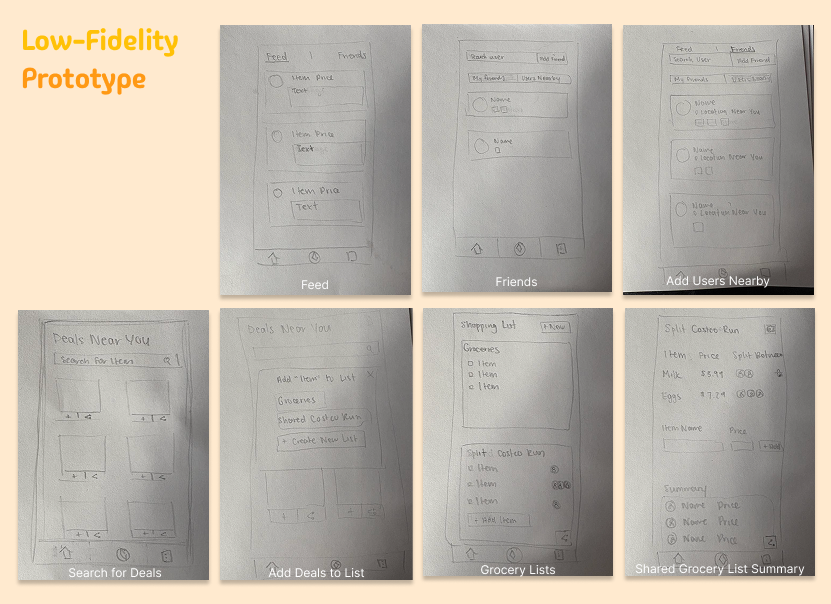 Low-Fidelity
Prototype
Feed | Friends
Item Price
Text
Item Price
Text
Item Price
Text
Feed
Search user Add Friend
My Friends Users Nearby
Name
Name
Friends
Feed | Friends
Search User Add Friend
My Friends Users Nearby
Name
Location Near You
Name
Location Near You
Name
Location Near You
Add Users Nearby
Deals Near You
Search For Item
+ | <
+ | <
+ | <
+ | <
+ | <
+ | <
Search for Deals
Deals Near You
Add "Item" to List X
Groceries
Shared Costco Run
+ Create New List
+ | <
+ | <
Add Deals to List
Shopping List + New
Groceries
Item
Item
Item
Split Costco Run
Item
Item
Item
+ Add Item
Grocery Lists
Split Costco Run
Item Price Split Between
Milk $3.99
Eggs $7.29
Item Name Price
+ Add
Summary
Name Price
Name Price
Name Price
Shared Grocery List Summary